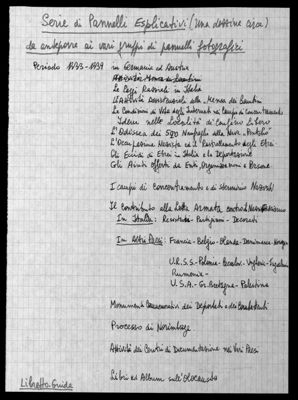 Serie di Pannelli Esplicativi (una dozzina circa)
da anteporre ai vari gruppi di pannelli fotografici
Periodo 1933-1939 in Germania ed Austria
Attività Mensa dei Bambini
Le Leggi Razziali in Italia
L'Attività Assistenziale della Mensa dei Bambini
Le Condizioni di Vita degli Internati nei Campi di Concentramento
Idem nelle Località di Confino Libero
L'Odissea dei 500 Naufraghi della Nave "Pentcho"
L'Occupazione Nazista ed il Rastrellamento degli Ebrei
Gli Eccidi di Ebrei in Italia e la Deportazione
Gli Aiuti offerti da Enti, Organizzazioni e Persone
I campi di Concentramento e di Sterminio Nazisti
Il Contributo alla Lotta Armata contro il
In Italia: Resistenza - Partigiani - Decorati
In Altri Paesi: Francia - Belgio - Olanda - Danimarca
U.R.S.S. - Polonia - - Ungheria -
Rumenia -
U.S.A. - Gr. Bretagna - Palestina
Monumenti Commemorativi dei Deportati e dei Combattenti
Processo di Norimberga
Attività dei Centri di Documentazione nei Vari Paesi
Libri ed Album sull'Olocausto
Libretto-Guida